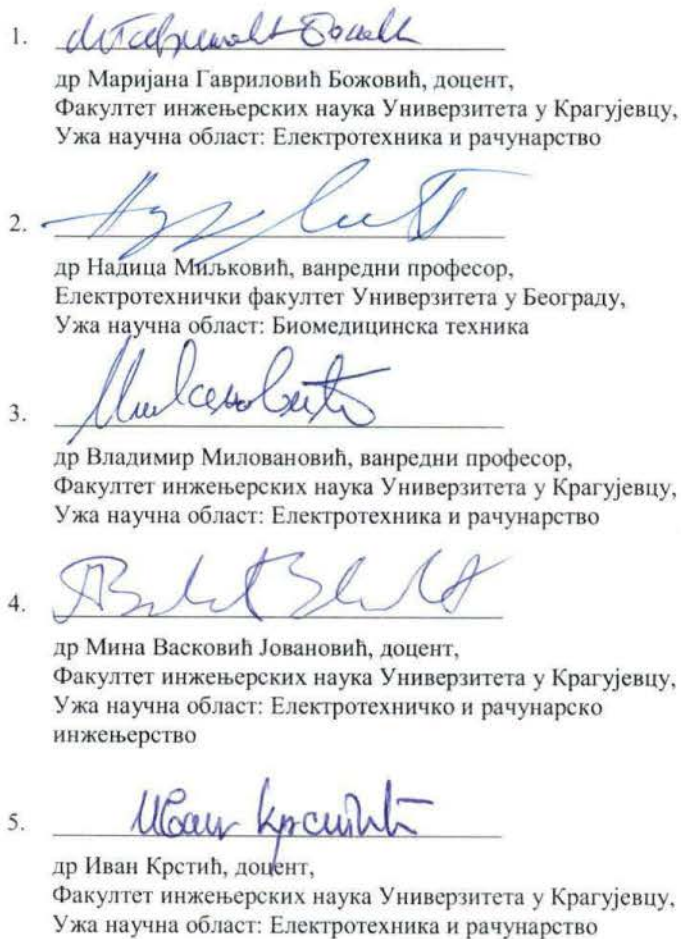 1.
др Маријана Гавриловић Божовић, доцент,
Факултет инжењерских наука Универзитета у Крагујевцу,
Ужа научна област: Електротехника и рачунарство
2.
др Надица Миљковић, ванредни професор,
Електротехнички факултет Универзитета у Београду,
Ужа научна област: Биомедицинска техника
3.
др Владимир Миловановић, ванредни професор,
Факултет инжењерских наука Универзитета у Крагујевцу,
Ужа научна област: Електротехника и рачунарство
4.
др Мина Васковић Јовановић, доцент,
Факултет инжењерских наука Универзитета у Крагујевцу,
Ужа научна област: Електротехничко и рачунарско
инжењерство
5. Иван Крстић
др Иван Крстић, доцент,
Факултет инжењерских наука Универзитета у Крагујевцу,
Ужа научна област: Електротехника и рачунарство